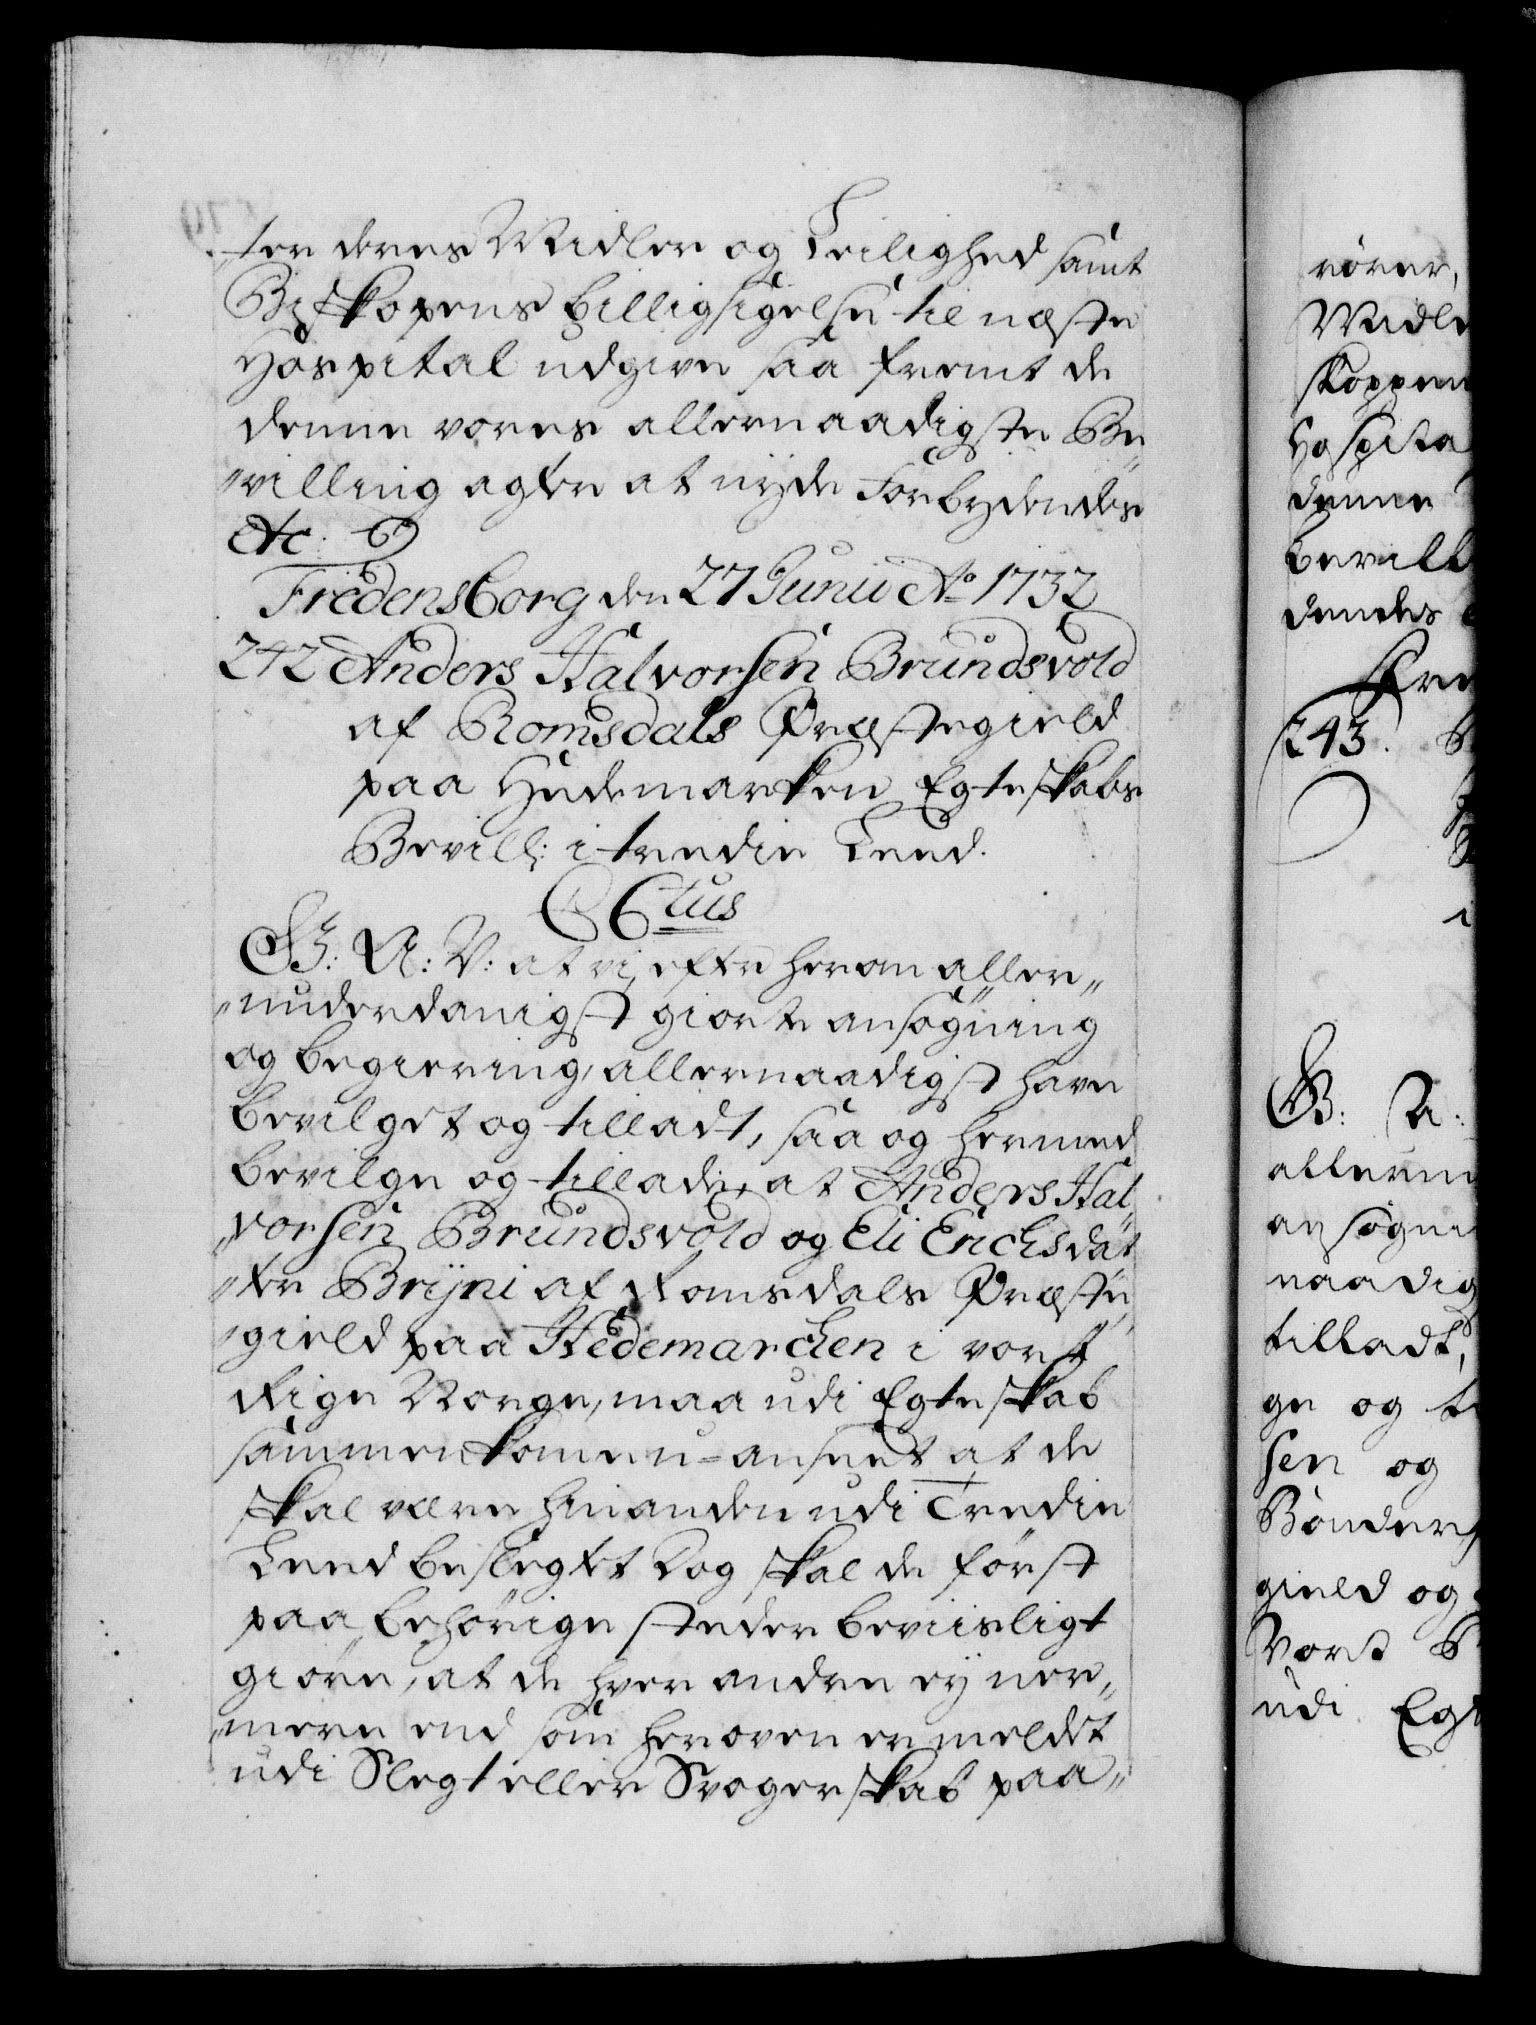 ter deres Midler og Leilighed samt
Biskopens billigsigelse til næste
Hospital udgive saa fremt de
denne vores allernaadigste Be
villing agter at nyde Forbydendes
etc.
Fredensborg den 27 Junii Ao 1732
242 Anders Halvorsen Brundsvold
af Romsdals Præstegield
paa Hedemarken Egteskabs
Bevill: i tredie Leed.
CCtus
G. A: V: at vi efter herom aller„
„underdanigst giorte ansøgning
og begiering, allernaadigst have
bevilget og tilladt, saa og hermed
bevilge og tillade, at Anders Hal„
„vorsen Brundsvold og Eli Erichsdat
„ter Bryni af Romsdals Præste„
„gield paa Hedemarchen i vort
Rige Norge, maa udi Egteskab
sammenkomme u-anseet at de
skal være hinanden udi Tredie
Leed beslegtet Dog skal de først
paa behørige steder beviisligt
giøre, at de hver andre ey ner„
„mere end som heroven er meldet
udi Slegt eller Svogerskab paa„
rører,
Midle
skoppen
Hospita
denne
bevill
dendes
Fre
243.
G. A:
allerun
ansøgni
naadig
tilladt,
ge og ti
sen og
Bønder
gield og
Vort
udi Egt